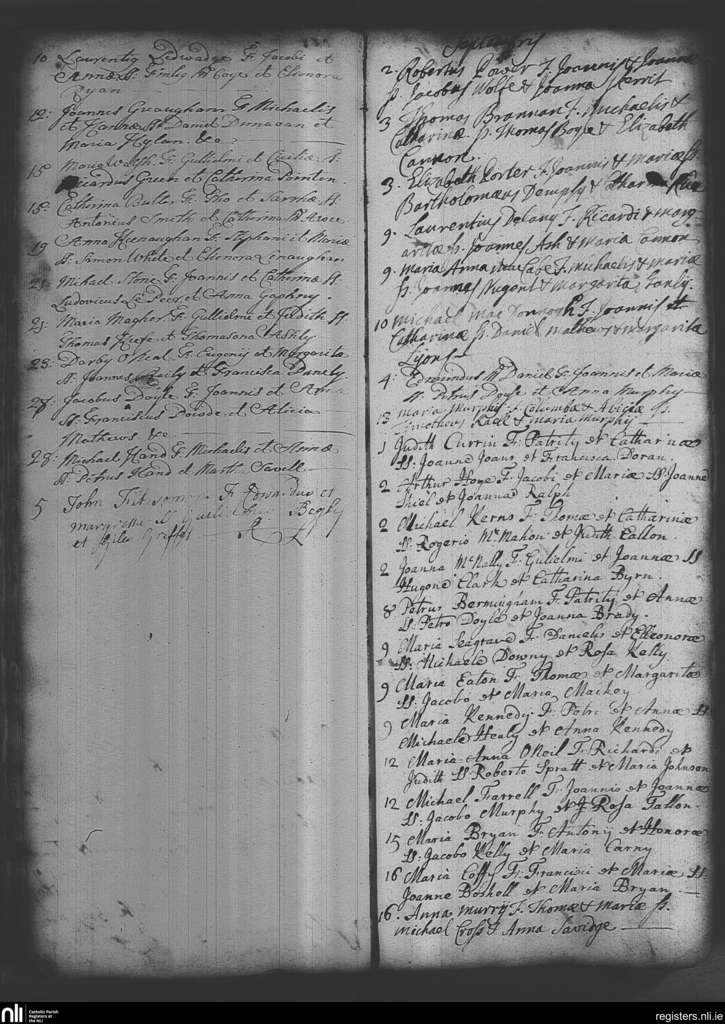 10 Laurentig Ledwadge F. Jacobi et
Annæ St. Emily McCoye et Elenora
Ryan
12. Joannus Graugham F. Michaelis
et Hannæ St. Daniel Dunagan et
Maria Hylan. &c
15 Walsh. F. Gullielmi et Cæciliæ St.
Ricardus Green et Catterina
15. Catterina Butler F. Tho et Sarrhæ St.
Antonius Smith et Catterina
19 Anna Keenaughan F. Stephani et Mariæ
St. Simon White et Elienora
21 Michael Stone F. Joannis et Catterinæ St
Ludovicus Le Peer et Anna Gaghney.
21. Maria Magher F. Gullielmi et Judith St
Thomas Keefe et Thomasona
23: Darby O'Neal F. Eugenij et Margarita
St. Joannis Reily et Francisca
27 Jacobus Doyle F. Joannis et Anna
St. Franciscus Dowde et Alicia
Mathews &c
28. Michael Hand F. Michaelis et Annæ
St. Petrus Hand et Marth. Savell
5 John F
et Giles
Septembris
2. Robertus Power F. Joannis & Joanna
Sp. Jacobus Wolfe & Joanna
3 Thomas Brannan F. Michaelis &
Catharinæ. Sp. Thomas Boyle & Elizabeth
Cannon.
3. Elizabeth Porter F. Joannis & Mariæ Sp.
Bartholomæus Dempsy &
9. Laurentius Delany F. Ricardi & Marg-
aritæ Sp. Joannes Ash & Maria Connor
9. Maria Anna F. Michaelis & Mariæ
Sp. Joannes Nugent & Margarita
10 Michael Mac Donnogh F. Joannis et
Catharinæ Sp. Daniel Mathews & Margarita
Lyons
4. Edmundus McDaniel F. Joannis et Mariæ
St. Petrus Doyle et Anna Murphy
13 Maria Murphy F. Columbæ & Aliciæ Sp.
Timotheus & Maria Murphy
1 Judith Currin F. Patritij et Catharinæ
SS. Joanne Joans et Francisca Doran.
2 Arthur Hoye F. Jacobi et Mariæ SS Joanne
Thiel et Joanna Ralph
2 Michael Kerns F. Thomæ et Cathariniæ
SS. Rogerio McMahon et Judith Fallon.
2 Joanna McNally F. Gulielmi et Joannæ SS
Hugone Clark et Catharina Byrn.
8 Petrus Bermingham F. Patritij et Annæ
SS. Petro Doyle et Joanna Brady.
9 Maria Seagrave F. Danielis et Elleonoræ
SS. Michaele Downy et Rosa Kelly.
9 Maria Eaton F. Thomæ et Margaritæ
SS. Jacobo et Maria Mackey
9 Maria Kennedy F. Petri et Annæ SS
Michaele Healy et Anna Kennedy
12 Maria Anna ONeil F. Richardi et
Judith SS Roberto Spratt et Maria Johnson
12 Michael Farrell F. Joannis et Joannæ
SS. Jacobo Murphy et Rosa Tallon.
15 Maria Bryan F. Antonij et Honoræ
SS. Jacobo Kelly et Maria Carny
16 Maria Coffy F. Francisci et Mariæ SS
Joanne Boshell et Maria Bryan.
16. Anna Murry F. Thomæ & Mariæ Sp.
Michael Cross & Anna Savidge
nli Catholic Parish Registers at the NLI
registers.nli.ie